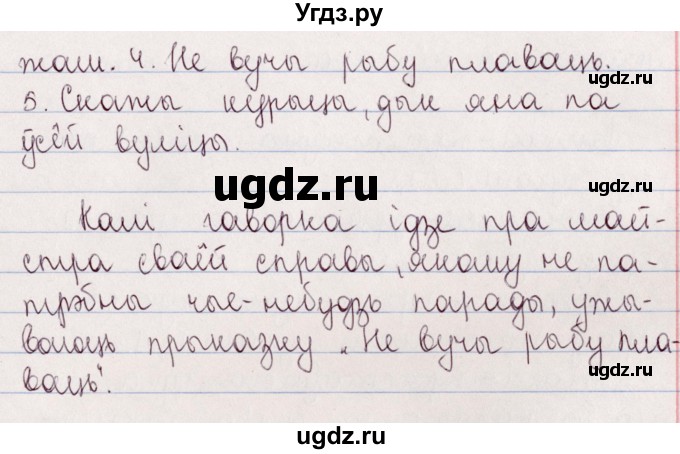 Угдз.ру
жаш. 4. Не вучы рыбу плаваць.
5. Скажы курыцы, дык яна па
ўсёй вуліцы.
ugdz.ru
ugdz.ru
Калі гаворка ідзе пра май-
стра сваёй справы, якому не па-
трэбны чые-небудзь парады, ужы-
ваюць прыказку „Не вучы рыбу пла-
ваць“.
ugdz.ru
ugdz.ru
ugdz.ru
ugdz.ru